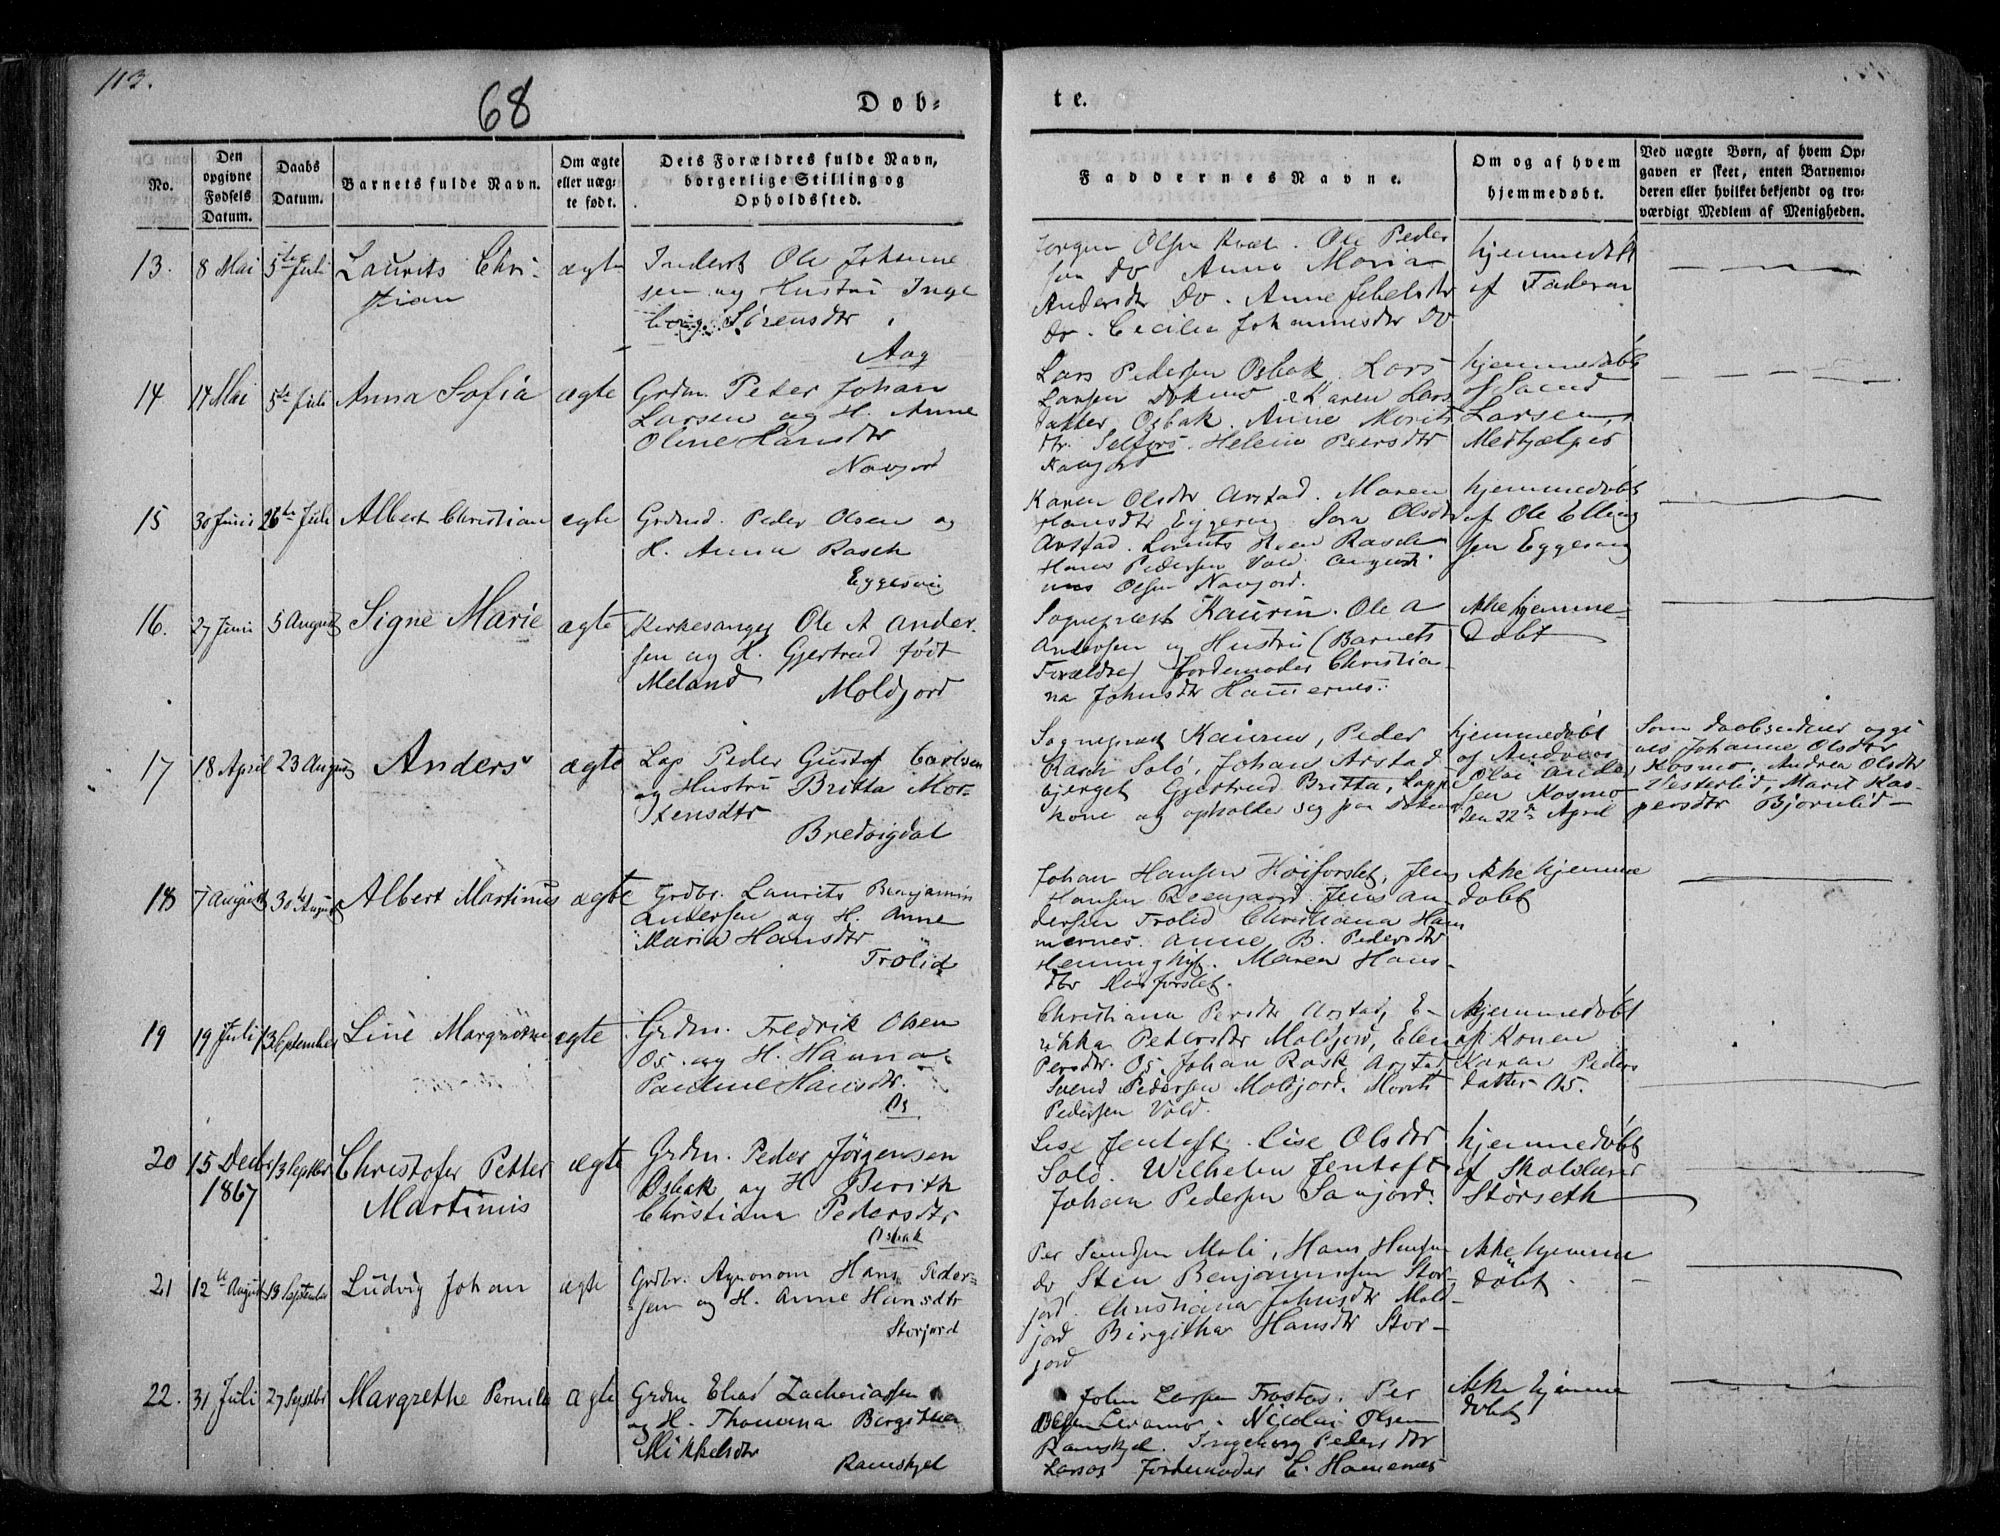 113.
68
Døb-
te.
No.
Den
opgivne
Fødsels
Datum.
Daabs
Datum.
Barnets fulde Navn.
Om ægte
eller uæg-
te født.
Dets Forældres fulde Navn,
borgerlige Stilling og
Opholdssted.
Faddernes Navne.
Om og af hvem
hjemmedøbt.
Ved uægte Børn, af hvem Op-
gaven er skeet, enten Barnemo-
deren eller hvilket bekjendt og tro-
værdigt Medlem af Menigheden.
13.
8 Mai
5te Juli
Laurits Chri-
stian
ægte
Inderst Ole Johanne
sen og Hustru Inge
borg Sørensdtr
Aag
Jørgen Olsen Ole Peder
sen Do Anna Maria
Andersdtr Do. Anne
Do. Cecilie Johannesdtr Do
hjemmedøbt
af Faderen
14
14 Mai
5te Juli
Anna Sofia
ægte
Grdm. Peter Johan
Larsen og H. Anne
Oline Hansdtr
Navjord
Lars Pedersen Osbak Lars
Larsen Karen Lars
datter Osbak. Anne Morits
dtr. Selfors. Helein Peersdtr
Navjord
hjemmedøbt
af
Larsen,
Medhjælper
15
30 Juni
26te Juli
Albert Christian
ægte
Grdmd. Peder Olsen og
H. Anna Rasch
Eggesvig
Karen Olsdtr Arstad. Maren
Hansdtr Eggesvig Olsdtr
Arstad. Lorents Rasch
Hans Pedersen Vold.
Olsen Navjord.
hjemmedøbt
af Ole Elling
sen Eggesvig
16.
27 Juni
5 August
Signe Marie
ægte
Kirkesanger Ole A Ander-
sen og H. Gjertrud født
Meland
Moldjord
Sognepræst Kaurin. Ole A
Andersen og Hustru (Barnets
Forældre) Jordemoder Christia-
na Johnsdtr Hamernes.
ikke hjemme-
døbt
17
18 April
23 August
Anders
ægte
Lap Peder Gustaf Carlsen
og Hustru Britta Mor-
tensdtr
Bredvigdal
Sognepræst Kaurin, Peder
Rasch Solø, Johan Arstad
bjerget Gjertrud Britta, Lappe
kone og opholder sig paa
hjemmedøbt
af Andreas
Olai Ander
sen Kosmo
den 22de April
Som Daabsvidner opgi
ves Johanne Olsdtr
Kosmo, Andrea Olsdtr
Vesterlid, Marit Kas-
persdtr Bjørnlid
18
7 August
30te August
Albert Martinus
ægte
Grdbr. Laurits Benjamin
Andersen og H. Anne
Maria Hansdtr
Trølid
Johan Hansen Høiforslet, Jens
Hansen Jens An-
dersen Trolid Christiana Ham
mernes. Anne B. Pedersdtr
Maren Hans
dtr Høiforslet.
Ikke hjemme
døbt
19
19 Juli
13 September
Line
ægte
Grdm. Fredrik Olsen
Os og H. Hanna
Pauline Hansdtr.
Os
Christiana Persdtr Arstad, E-
rikka Petersdtr Moldjord, Elen
Persdtr. Os. Johan Rask Arstad
Svend Pedersen Moldjord. Morits
Pedersen Vold.
hjemmedøbt
af Konen
Karen Peders
datter Os
20
15 Decbr
1867
13 Septbr
Christofer Petter
Martinus
ægte
Grdm. Peder Jørgensen
Osbak og H Berith
Christiana Pedersdtr
Osbak
Lise Jentoft. Lise Olsdtr
Solø. Wilhelm Jentoft
Johan Pedersen Sanjord.
hjemmedøbt
af Skolelærer
Størseth
21
12te August
13 September
Ludvig Johan
ægte
Grdbr. Agronom Hans Peder-
sen og H. Anne Hansdtr
Storjord
Per Moli, Hans Hansen
do, Sten Benjaminsen Stor-
jord. Christiana Johnsdtr Mold-
jord Birgitha Hansdtr Stor-
jord
Ikke hjemme
døbt.
22.
31 Juli
27 Septbr
Margrethe Pernille
ægte
Grdm Elias Zachariassen
og H. Thomina Bergithe
Mikkelsdtr
Ramskjel
John Larsen Per
Olsen Nicolai Olsen
Ramskjel. Ingeborg Pedersdtr
Larsos Jordemoder C. Hamernes
Ikke hjemme
døbt